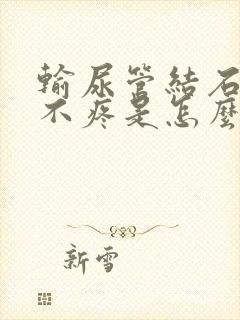 輸尿管結石
不疼是怎麼
新雪